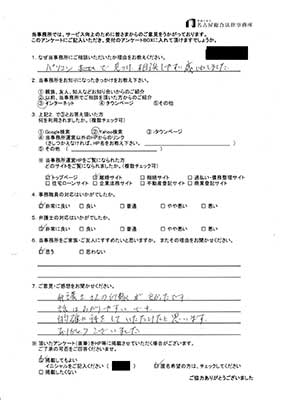 名古屋総合法律事務所
当事務所では、サービス向上のために皆さまからのご意見をうかがっております。
このアンケートにご記入いただき、受付のアンケートBOXに入れて頂けますでしょうか。
1. なぜ当事務所にご相談いただいたか理由をお教えください。
パソコン
で見つけ 相談しやすく感じました
2. 当事務所をお知りになったきっかけをお教え下さい。
①親族、友人、知人などお知り合いからのご紹介
②以前、当事務所でご相談を頂いた方からのご紹介
③インターネット ④タウンページ ⑤その他
3. 上記2. で③とお答え頂いた方
何を利用されましたか。(複数チェック可)
①Google検索 ②Yahoo検索 ③タウンページ
④当事務所運営以外のHPからのリンク
(さしつかえなければ、HP名をお教え下さい。 )
⑤その他 ( )
※当事務所運営HPをご覧になられた方
どのサイトをご覧になられましたか。(複数チェック可)
□トップページ 離婚サイト □相続サイト □過払い・債務整理サイト
□住宅ローンサイト □企業法務サイト □不動産登記サイト □商業登記サイト
4. 事務職員の対応はいかがでしたか。
非常に良い □良い □普通 □やや悪い □悪い
5. 弁護士の対応はいかがでしたか。
非常に良い □良い □普通 □やや悪い □悪い
6. 当事務所をご家族・ご友人にすすめたいと思いますか。またその理由をお聞かせください。
思う □思わない
7. ご意見・ご感想をお聞かせください。
弁護士さんの印象が
話はわかりやすいです。
的確な話をしていただけたと思います。
ありがとうございました
※頂いたアンケート(直筆)をHP等に掲載させていただく場合がございます。
ご了承の可否をご回答くださいませ。
掲載してもよい
イニシャルをご記入ください ( ) 匿名希望の方は、チェックしてください
□掲載したくない
ご協力ありがとうございました